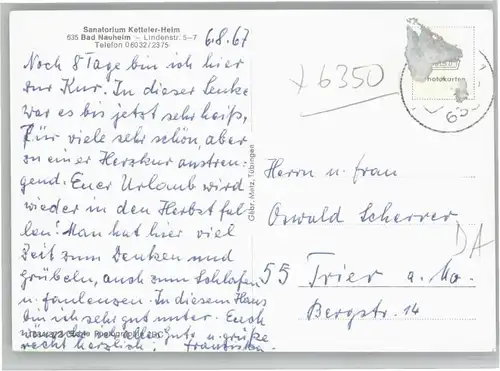 Sanatorium Ketteler-Heim
635 Bad Nauheim – Lindenstr. 5–7
Telefon 06032/2375
6.8.67
Noch 8 Tage bin ich hier
zur Kur. In dieser Senke
war es bis jetzt sehr heiß,
Für viele sehr schön, aber
zu einer Herzkur anstren-
gend. Euer Urlaub wird
wieder in den Herbst fal-
len! Man hat hier viel
Zeit zum Denken und
grübeln, auch zum Schlafen
u. faulenzen. In diesem Haus
bin ich sehr gut unter. Euch
alles Gute u. grüße
recht herzlich!
Gebr. Metz, Tübingen
x 6350
Herrn u. Frau
Oswald Scherrer
DA
55 Trier a. Mo.
Bergstr. 14